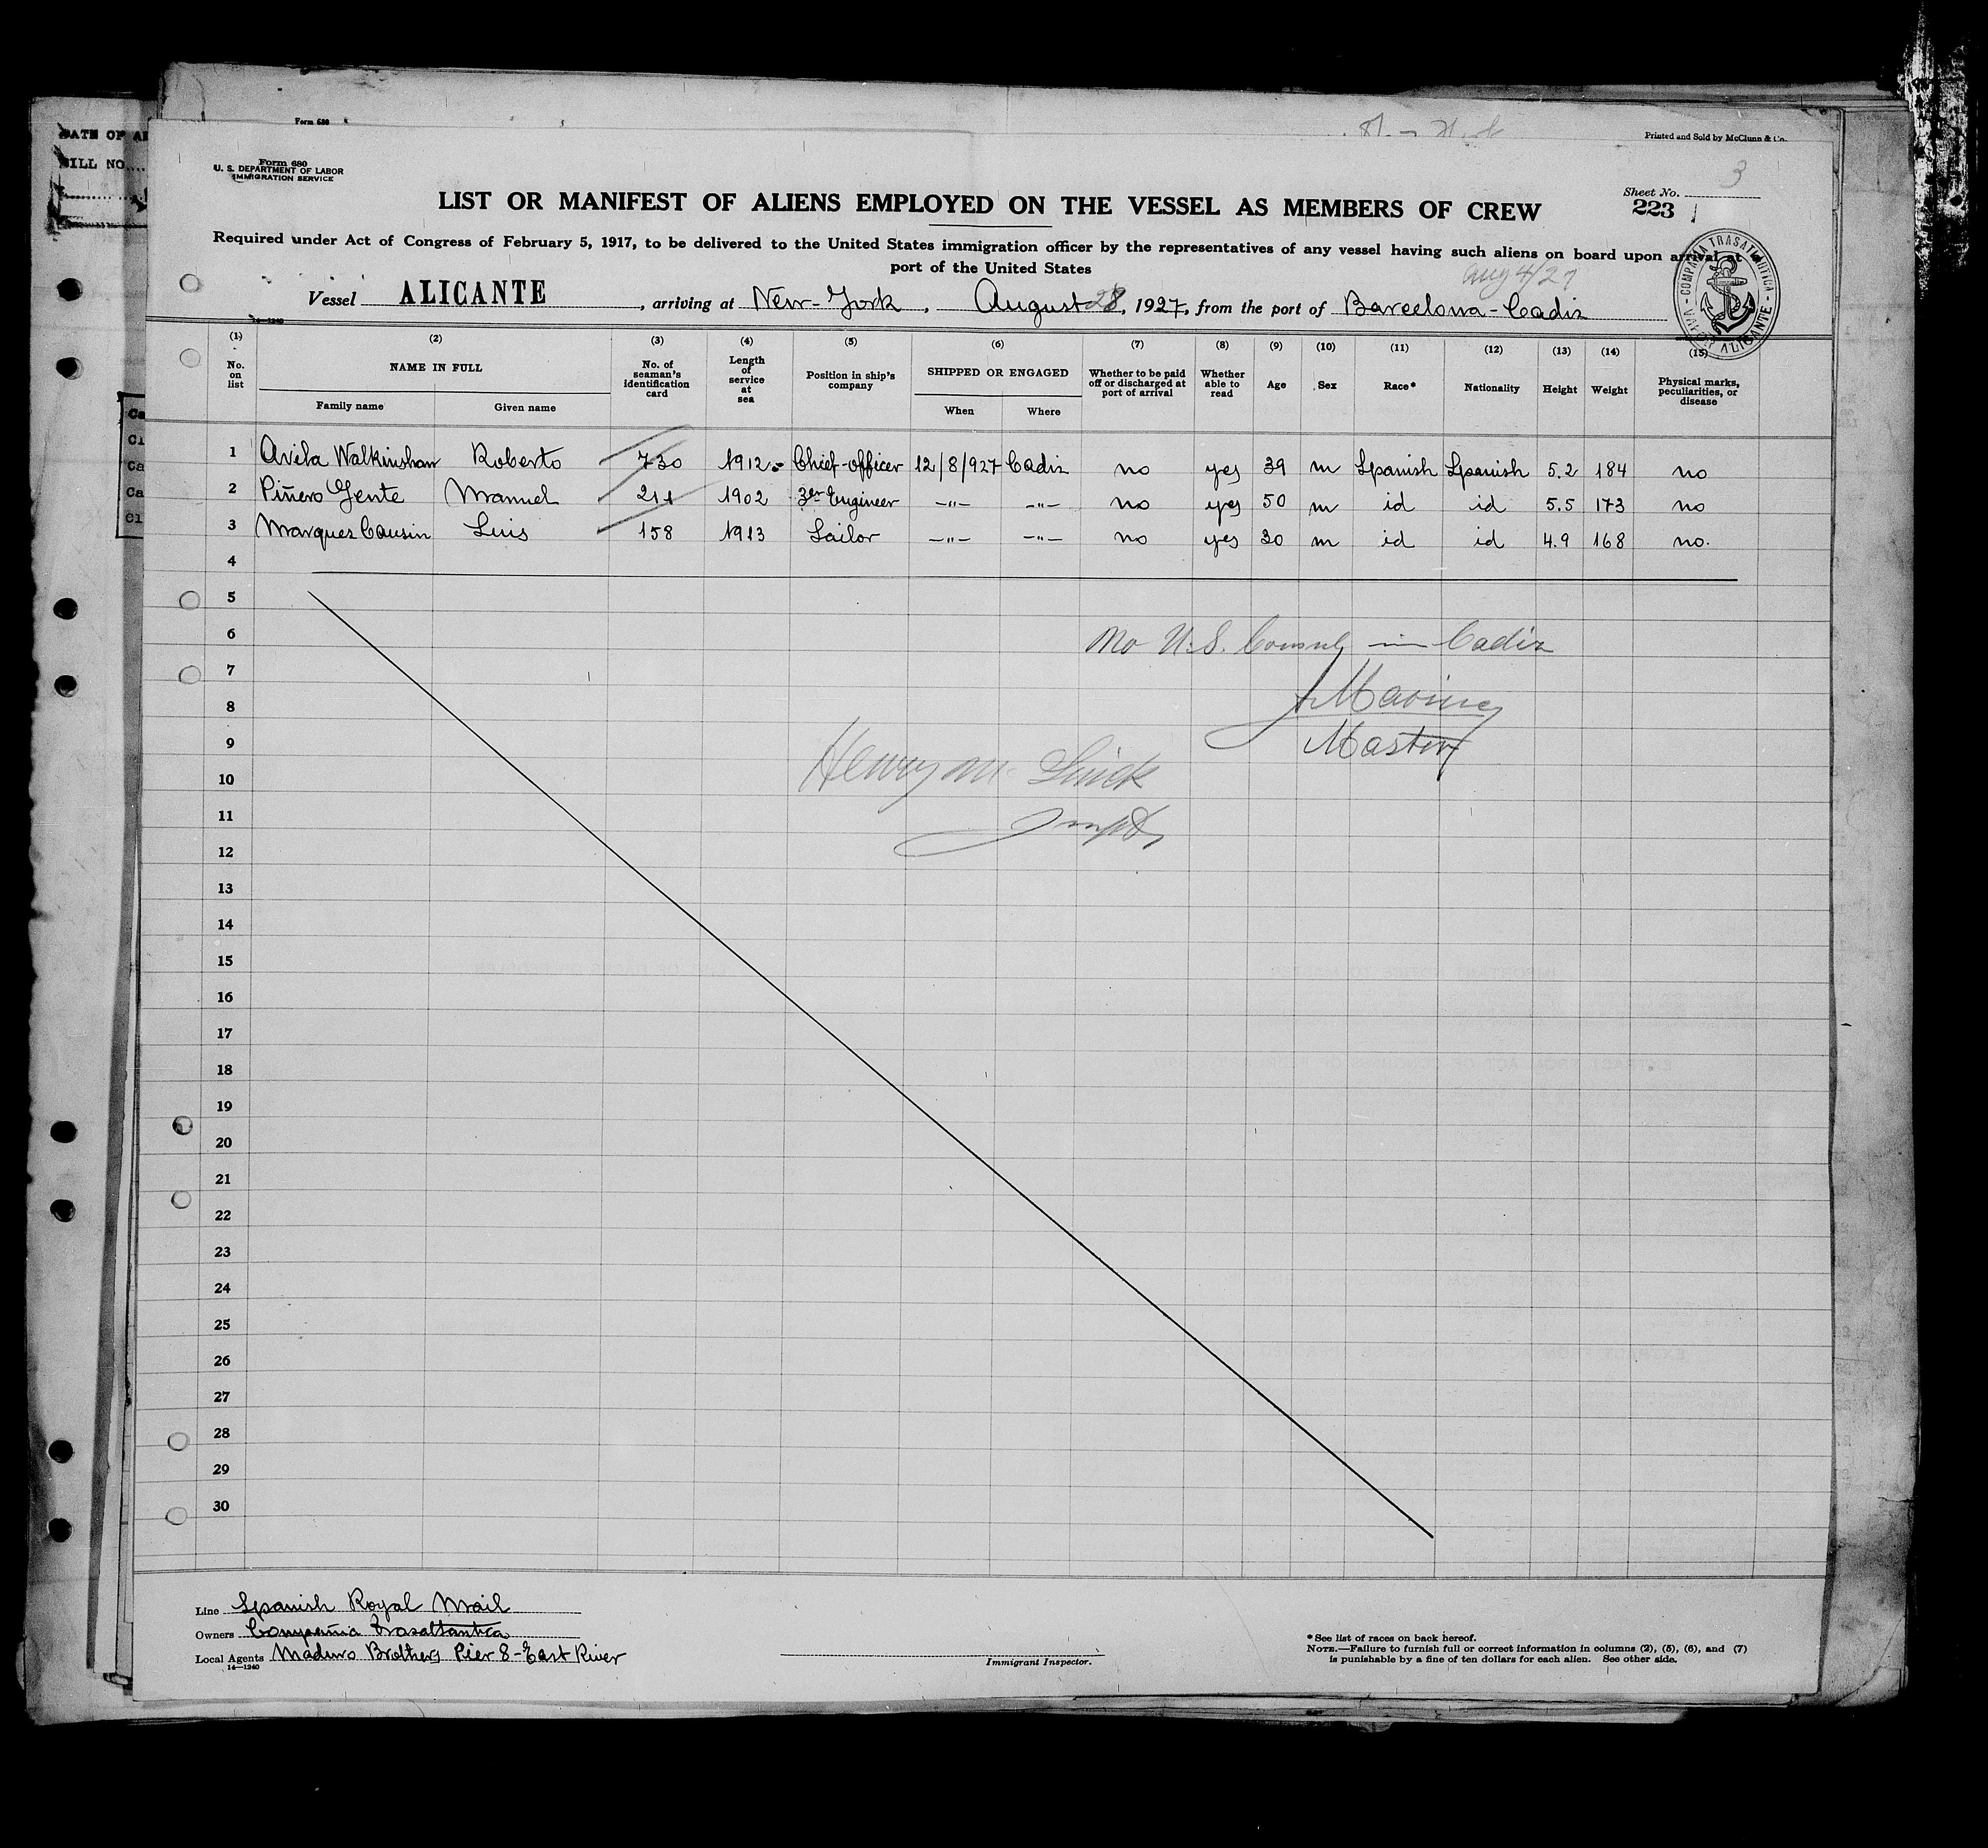 DATE OF
BILL NO.
Form 680
Printed and Sold by McClunn & Co.
Form 680
U. S. DEPARTMENT OF LABOR
IMMIGRATION SERVICE
3
Sheet No.
223
LIST OR MANIFEST OF ALIENS EMPLOYED ON THE VESSEL AS MEMBERS OF CREW
Required under Act of Congress of February 5, 1917, to be delivered to the United States immigration officer by the representatives of any vessel having such aliens on board upon arrival at
port of the United States
Aug 4/27
COMPAÑIA TRASATLANTICA - VAPOR ALICANTE -
Vessel ALICANTE, arriving at New-York, August 28, 1927, from the port of Barcelona-Cadiz
14-1240
(1) (2) (3) (4) (5) (6) (7) (8) (9) (10) (11) (12) (13) (14) (15)
No. on list NAME IN FULL Family name Given name No. of seaman's identification card Length of service at sea Position in ship's company SHIPPED OR ENGAGED When Where Whether to be paid off or discharged at port of arrival Whether able to read Age Sex Race* Nationality Height Weight Physical marks, peculiarities, or disease
1 Avila Walkinshaw Roberto 730 1912.- Chief-officer 12/8/927 Cadiz no yes 39 m Spanish Spanish 5.2 184 no
2 Piñero Gente Manuel 211 1902 3er Engineer -"- -"- no yes 50 m id id 5.5 173 no
3 Marques Cousin Luis 158 1913 Sailor -"- -"- no yes 30 m id id 4.9 168 no.
4
5
6
No U.S. Consul in Cadiz
7
8
Master
9
10
Henry M.
11
12
13
14
15
16
17
18
19
20
21
22
23
24
25
26
27
28
29
30
Line Spanish Royal Mail
Owners Compañia Trasatlantica
Local Agents Maduro Brothers Pier 8-East River
14-1240
Immigrant Inspector.
*See list of races on back hereof.
NOTE.—Failure to furnish full or correct information in columns (2), (5), (6), and (7)
is punishable by a fine of ten dollars for each alien. See other side.